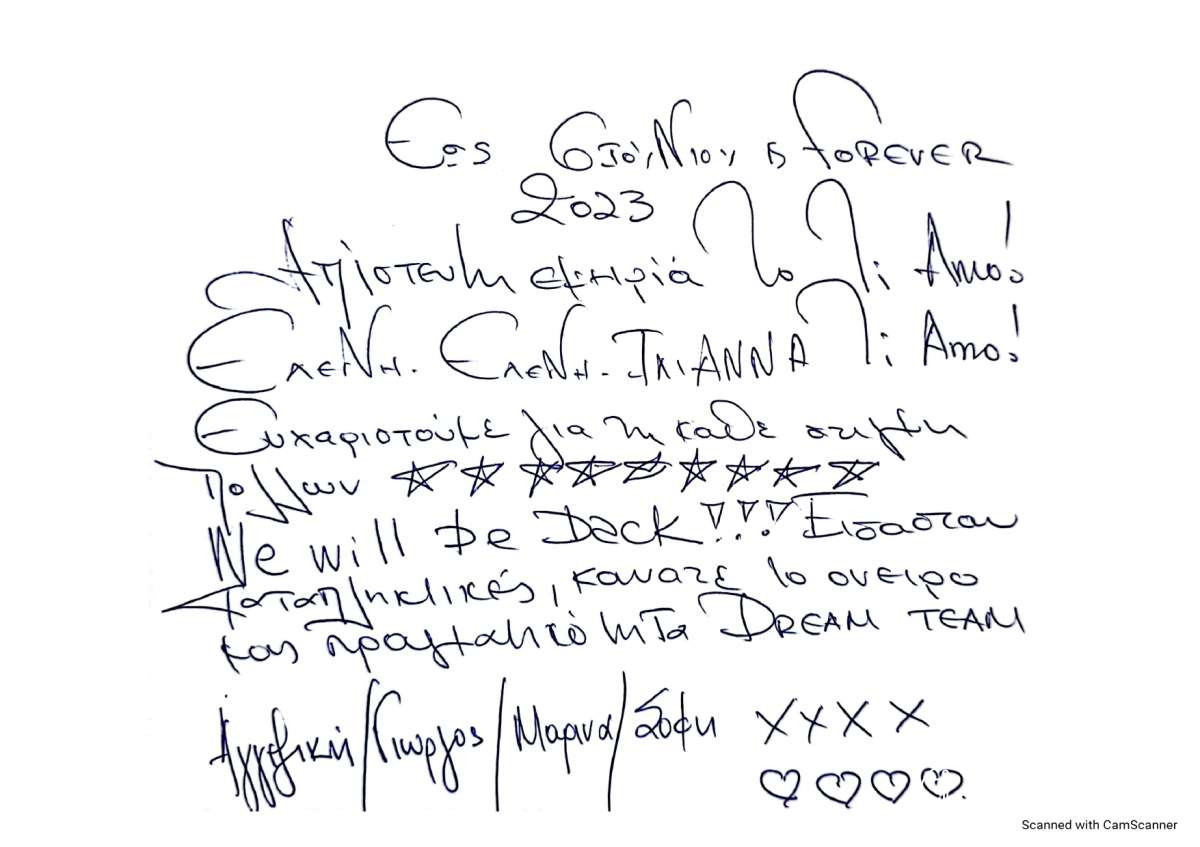 Εως 6 Ιουνιου & FOREVER
2023
Απίστευτη εμπειρία το Ti Amo!
Ελένη. Ελένη. ΙΛΙΑΝΝΑ Ti Amo!
Ευχαριστούμε για τη καθε στιγμη
Πολλων
We will be Back!!! Εισασταν
καταπληκτικές, κανατε το ονειρο
μας πραγματικότητα DREAM TEAM
Αγγελική/Γιωργος/Μαρινα/Σοφη XXXX
Scanned with CamScanner